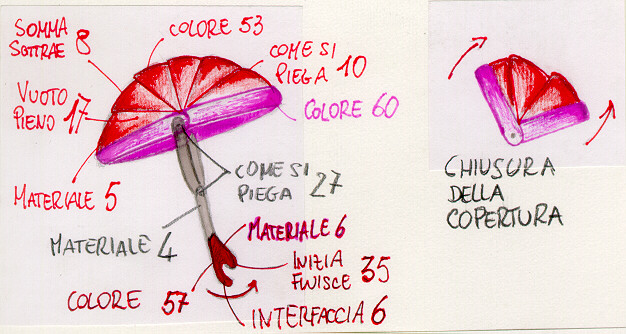 SOMMA
SOTTRAE 8
COLORE 53
COME SI
PIEGA 10
VUOTO
PIENO 17
COLORE 60
MATERIALE 5
COME SI
PIEGA 27
MATERIALE 4
MATERIALE 6
INIZIA
FINISCE 35
COLORE 57
INTERFACCIA 6
CHIUSURA
DELLA
COPERTURA